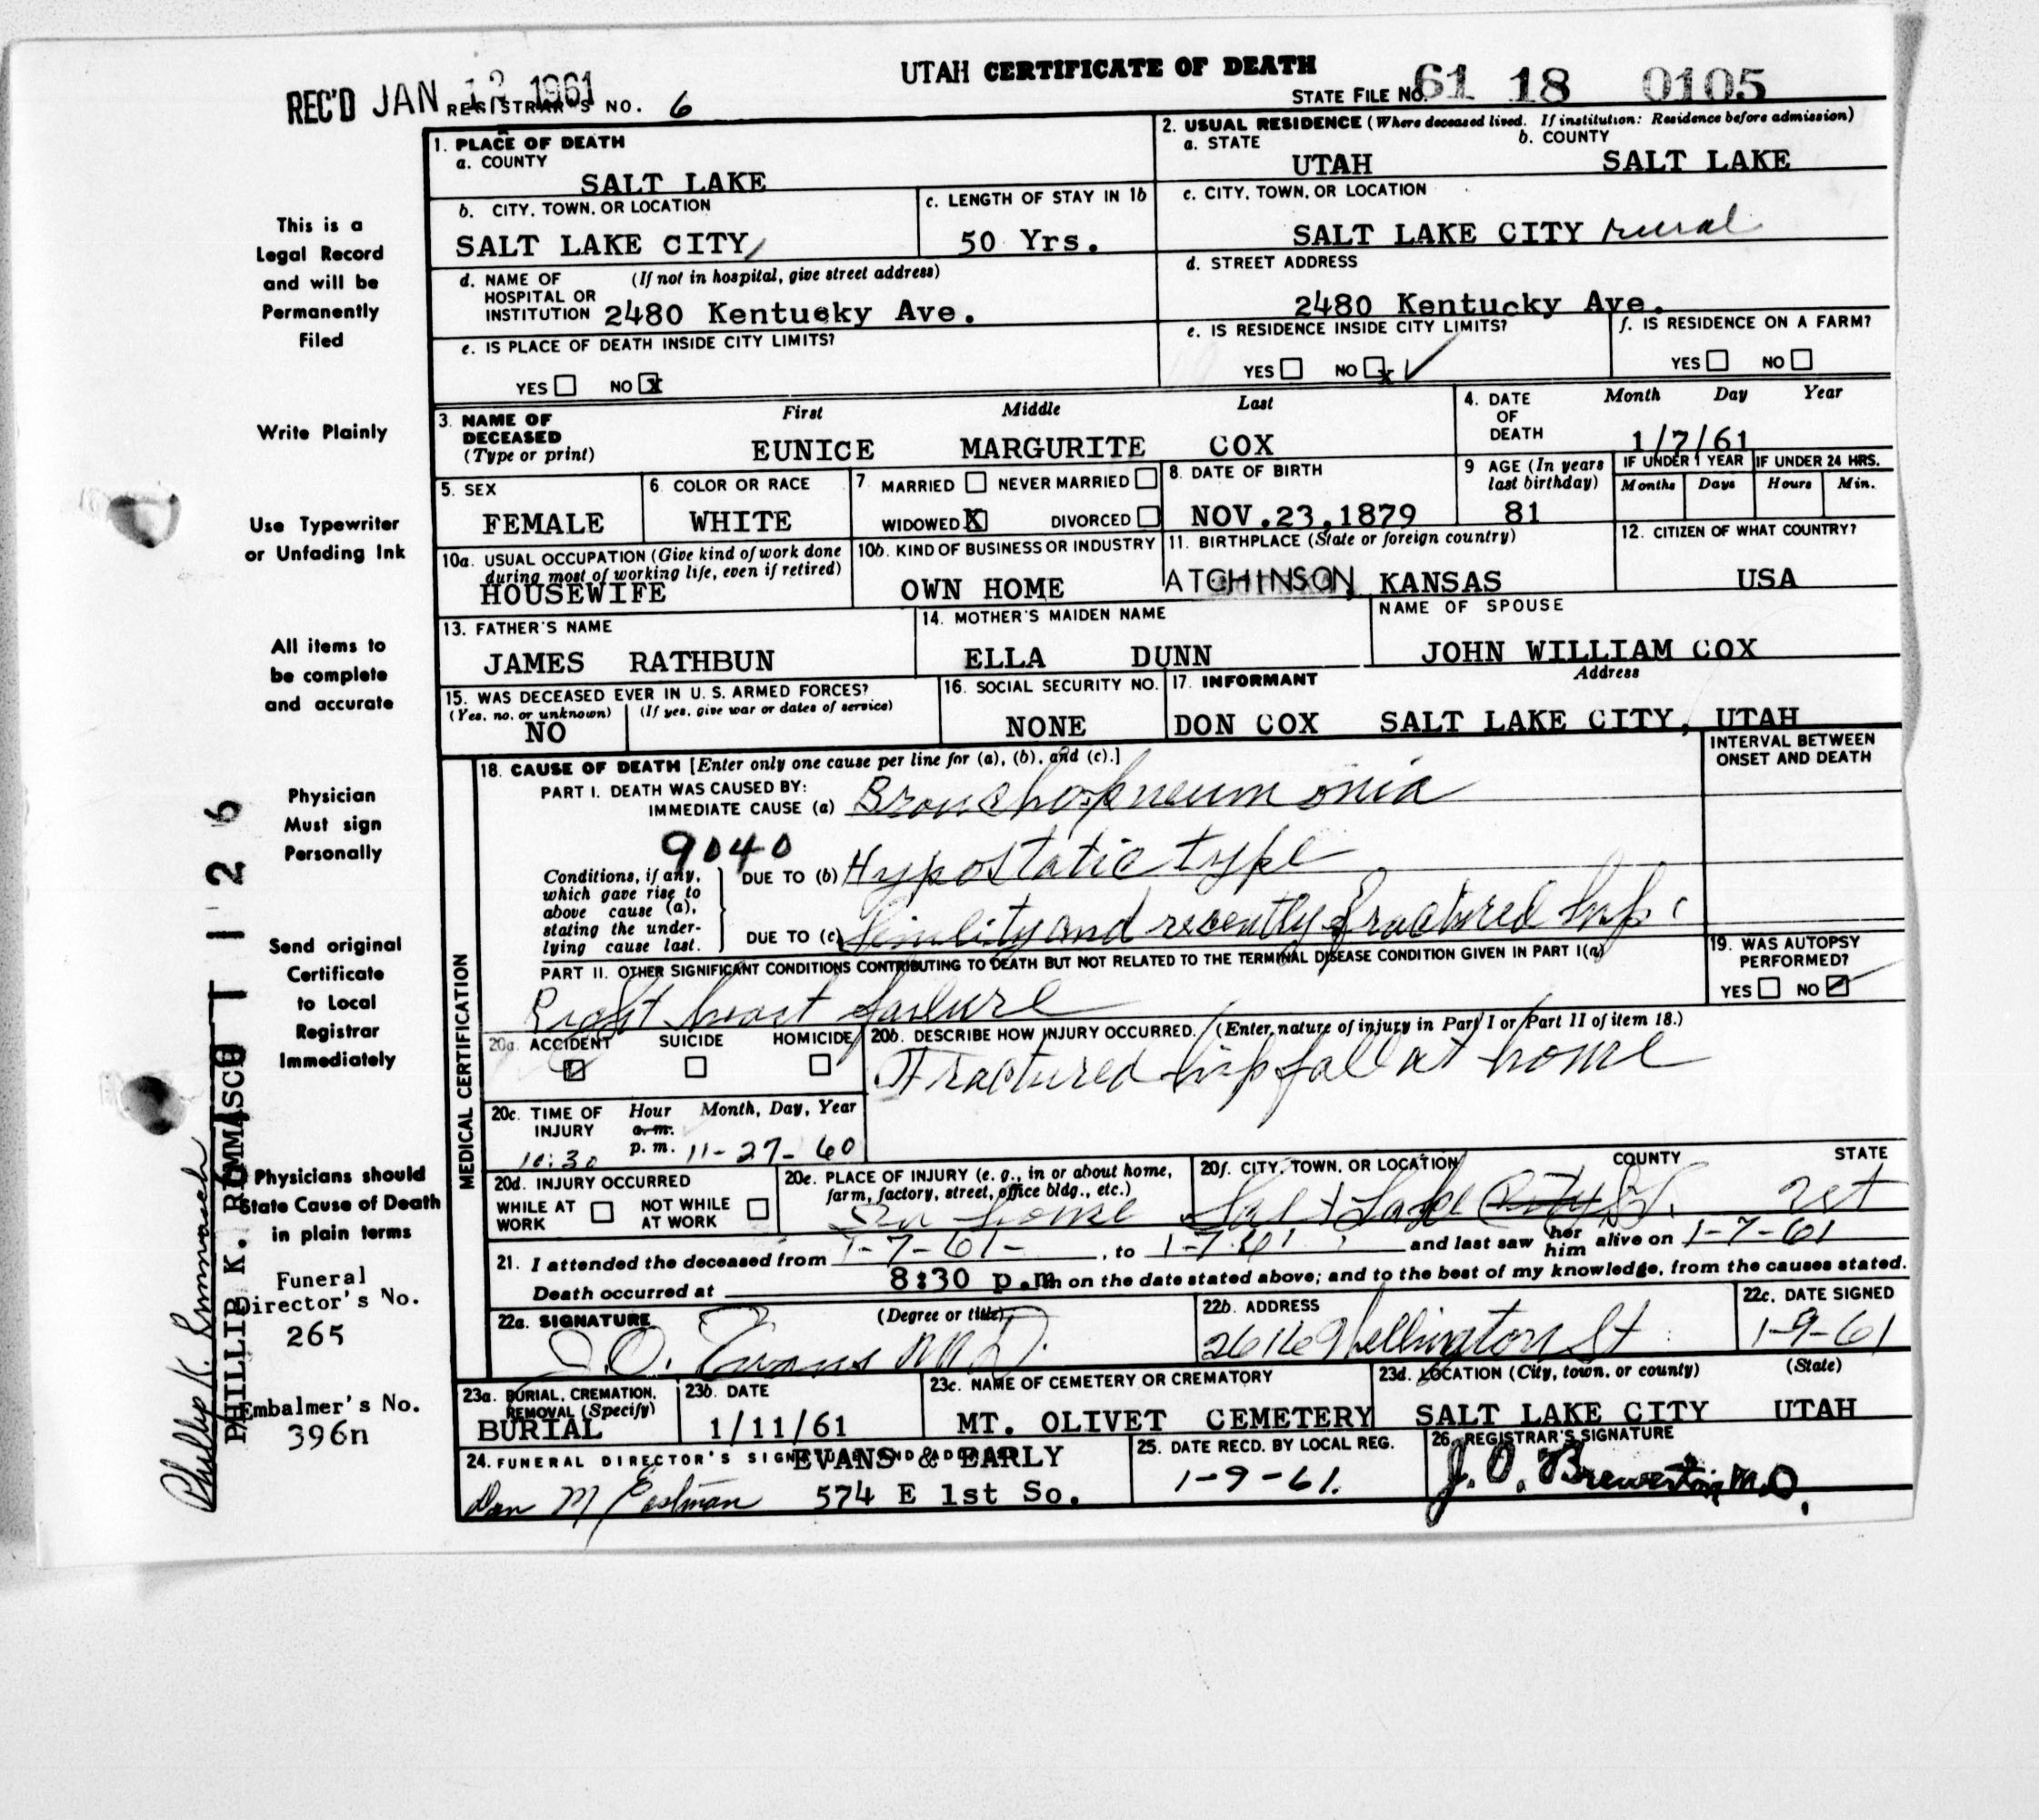 UTAH CERTIFICATE OF DEATH
REC'D JAN 12 1961
REGISTRAR'S NO. 6
STATE FILE NO. 61 18 0105
1. PLACE OF DEATH
a. COUNTY
SALT LAKE
2. USUAL RESIDENCE (Where deceased lived. If institution: Residence before admission)
a. STATE b. COUNTY
UTAH SALT LAKE
b. CITY, TOWN, OR LOCATION
SALT LAKE CITY
c. LENGTH OF STAY IN 1b
50 Yrs.
c. CITY, TOWN, OR LOCATION
SALT LAKE CITY rural
d. NAME OF HOSPITAL OR INSTITUTION (If not in hospital, give street address)
2480 Kentucky Ave.
d. STREET ADDRESS
2480 Kentucky Ave.
e. IS PLACE OF DEATH INSIDE CITY LIMITS?
YES NO x
e. IS RESIDENCE INSIDE CITY LIMITS?
YES NO x
f. IS RESIDENCE ON A FARM?
YES NO
3. NAME OF DECEASED (Type or print)
First Middle Last
EUNICE MARGURITE COX
4. DATE OF DEATH
Month Day Year
1/7/61
5. SEX
FEMALE
6. COLOR OR RACE
WHITE
7. MARRIED NEVER MARRIED
WIDOWED X DIVORCED
8. DATE OF BIRTH
NOV.23,1879
9 AGE (In years last birthday)
81
IF UNDER 1 YEAR
Months Days
IF UNDER 24 HRS.
Hours Min.
10a. USUAL OCCUPATION (Give kind of work done during most of working life, even if retired)
HOUSEWIFE
10b. KIND OF BUSINESS OR INDUSTRY
OWN HOME
11. BIRTHPLACE (State or foreign country)
ATCHINSON, KANSAS
12. CITIZEN OF WHAT COUNTRY?
USA
13. FATHER'S NAME
JAMES RATHBUN
14. MOTHER'S MAIDEN NAME
ELLA DUNN
NAME OF SPOUSE
JOHN WILLIAM COX
15. WAS DECEASED EVER IN U. S. ARMED FORCES?
(Yes, no, or unknown) (If yes, give war or dates of service)
NO
16. SOCIAL SECURITY NO.
NONE
17. INFORMANT Address
DON COX SALT LAKE CITY, UTAH
MEDICAL CERTIFICATION
18. CAUSE OF DEATH [Enter only one cause per line for (a), (b), and (c).]
INTERVAL BETWEEN ONSET AND DEATH
PART I. DEATH WAS CAUSED BY:
IMMEDIATE CAUSE (a) Bronchopneumonia
9040
Conditions, if any, which gave rise to above cause (a), stating the underlying cause last.
DUE TO (b) Hypostatic type
DUE TO (c) Senility and recently fractured hip
PART II. OTHER SIGNIFICANT CONDITIONS CONTRIBUTING TO DEATH BUT NOT RELATED TO THE TERMINAL DISEASE CONDITION GIVEN IN PART I(a)
Right heart failure
19. WAS AUTOPSY PERFORMED?
YES NO
20a. ACCIDENT SUICIDE HOMICIDE
20b. DESCRIBE HOW INJURY OCCURRED. (Enter nature of injury in Part I or Part II of item 18.)
Fractured hip fall at home
20c. TIME OF INJURY
Hour Month, Day, Year
a.m.
10:30 p. m. 11-27-60
20d. INJURY OCCURRED
WHILE AT WORK NOT WHILE AT WORK
20e. PLACE OF INJURY (e. g., in or about home, farm, factory, street, office bldg., etc.)
In home
20f. CITY, TOWN, OR LOCATION COUNTY STATE
Salt Lake City
21. I attended the deceased from 1-7-61-, to 1-7-61 and last saw her him alive on 1-7-61
Death occurred at 8:30 p.m. m on the date stated above; and to the best of my knowledge, from the causes stated.
22a. SIGNATURE (Degree or title)
J.O. Evans M.D.
22b. ADDRESS
Wellington St
22c. DATE SIGNED
1-9-61
23a. BURIAL, CREMATION, REMOVAL (Specify)
BURIAL
23b. DATE
1/11/61
23c. NAME OF CEMETERY OR CREMATORY
MT. OLIVET CEMETERY
23d. LOCATION (City, town, or county) (State)
SALT LAKE CITY UTAH
24. FUNERAL DIRECTOR'S SIGNATURE AND ADDRESS
EVANS & EARLY
Don M Eastman 574 E 1st So.
25. DATE RECD. BY LOCAL REG.
1-9-61.
26. REGISTRAR'S SIGNATURE
J. O. Brewerton M.D.
This is a
Legal Record
and will be
Permanently
Filed
Write Plainly
Use Typewriter
or Unfading Ink
All items to
be complete
and accurate
Physician
Must sign
Personally
Send original
Certificate
to Local
Registrar
Immediately
Physicians should
State Cause of Death
in plain terms
Funeral
Director's No.
265
Embalmer's No.
396n